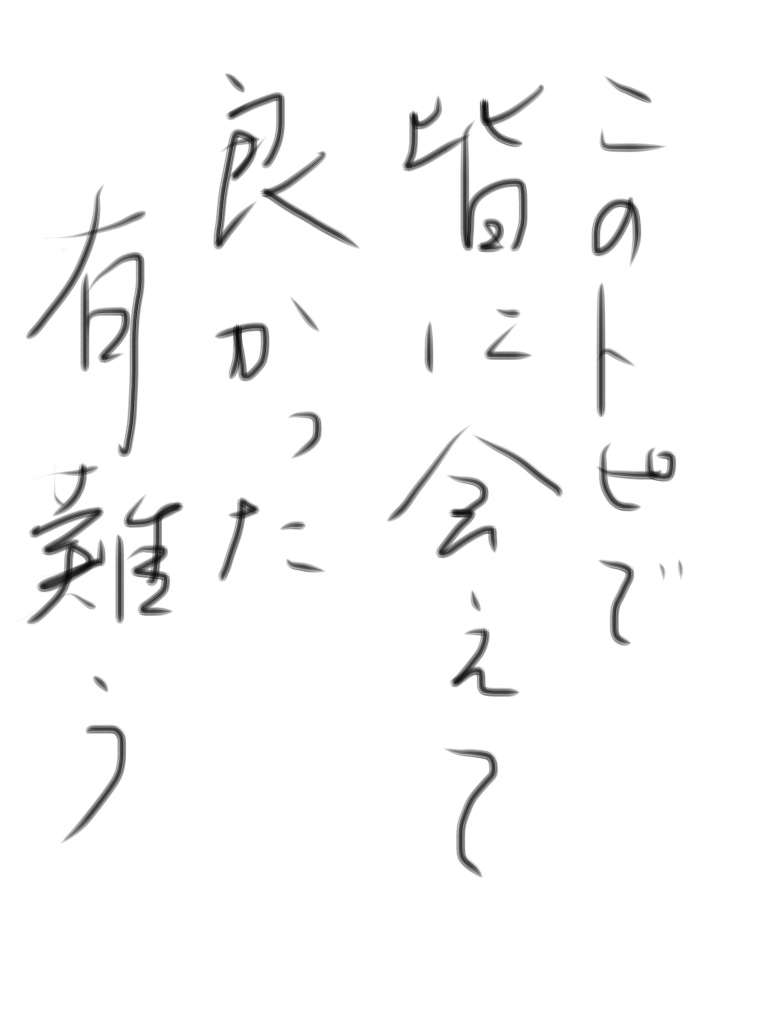 このトピで
皆に会えて
良かった
有難う